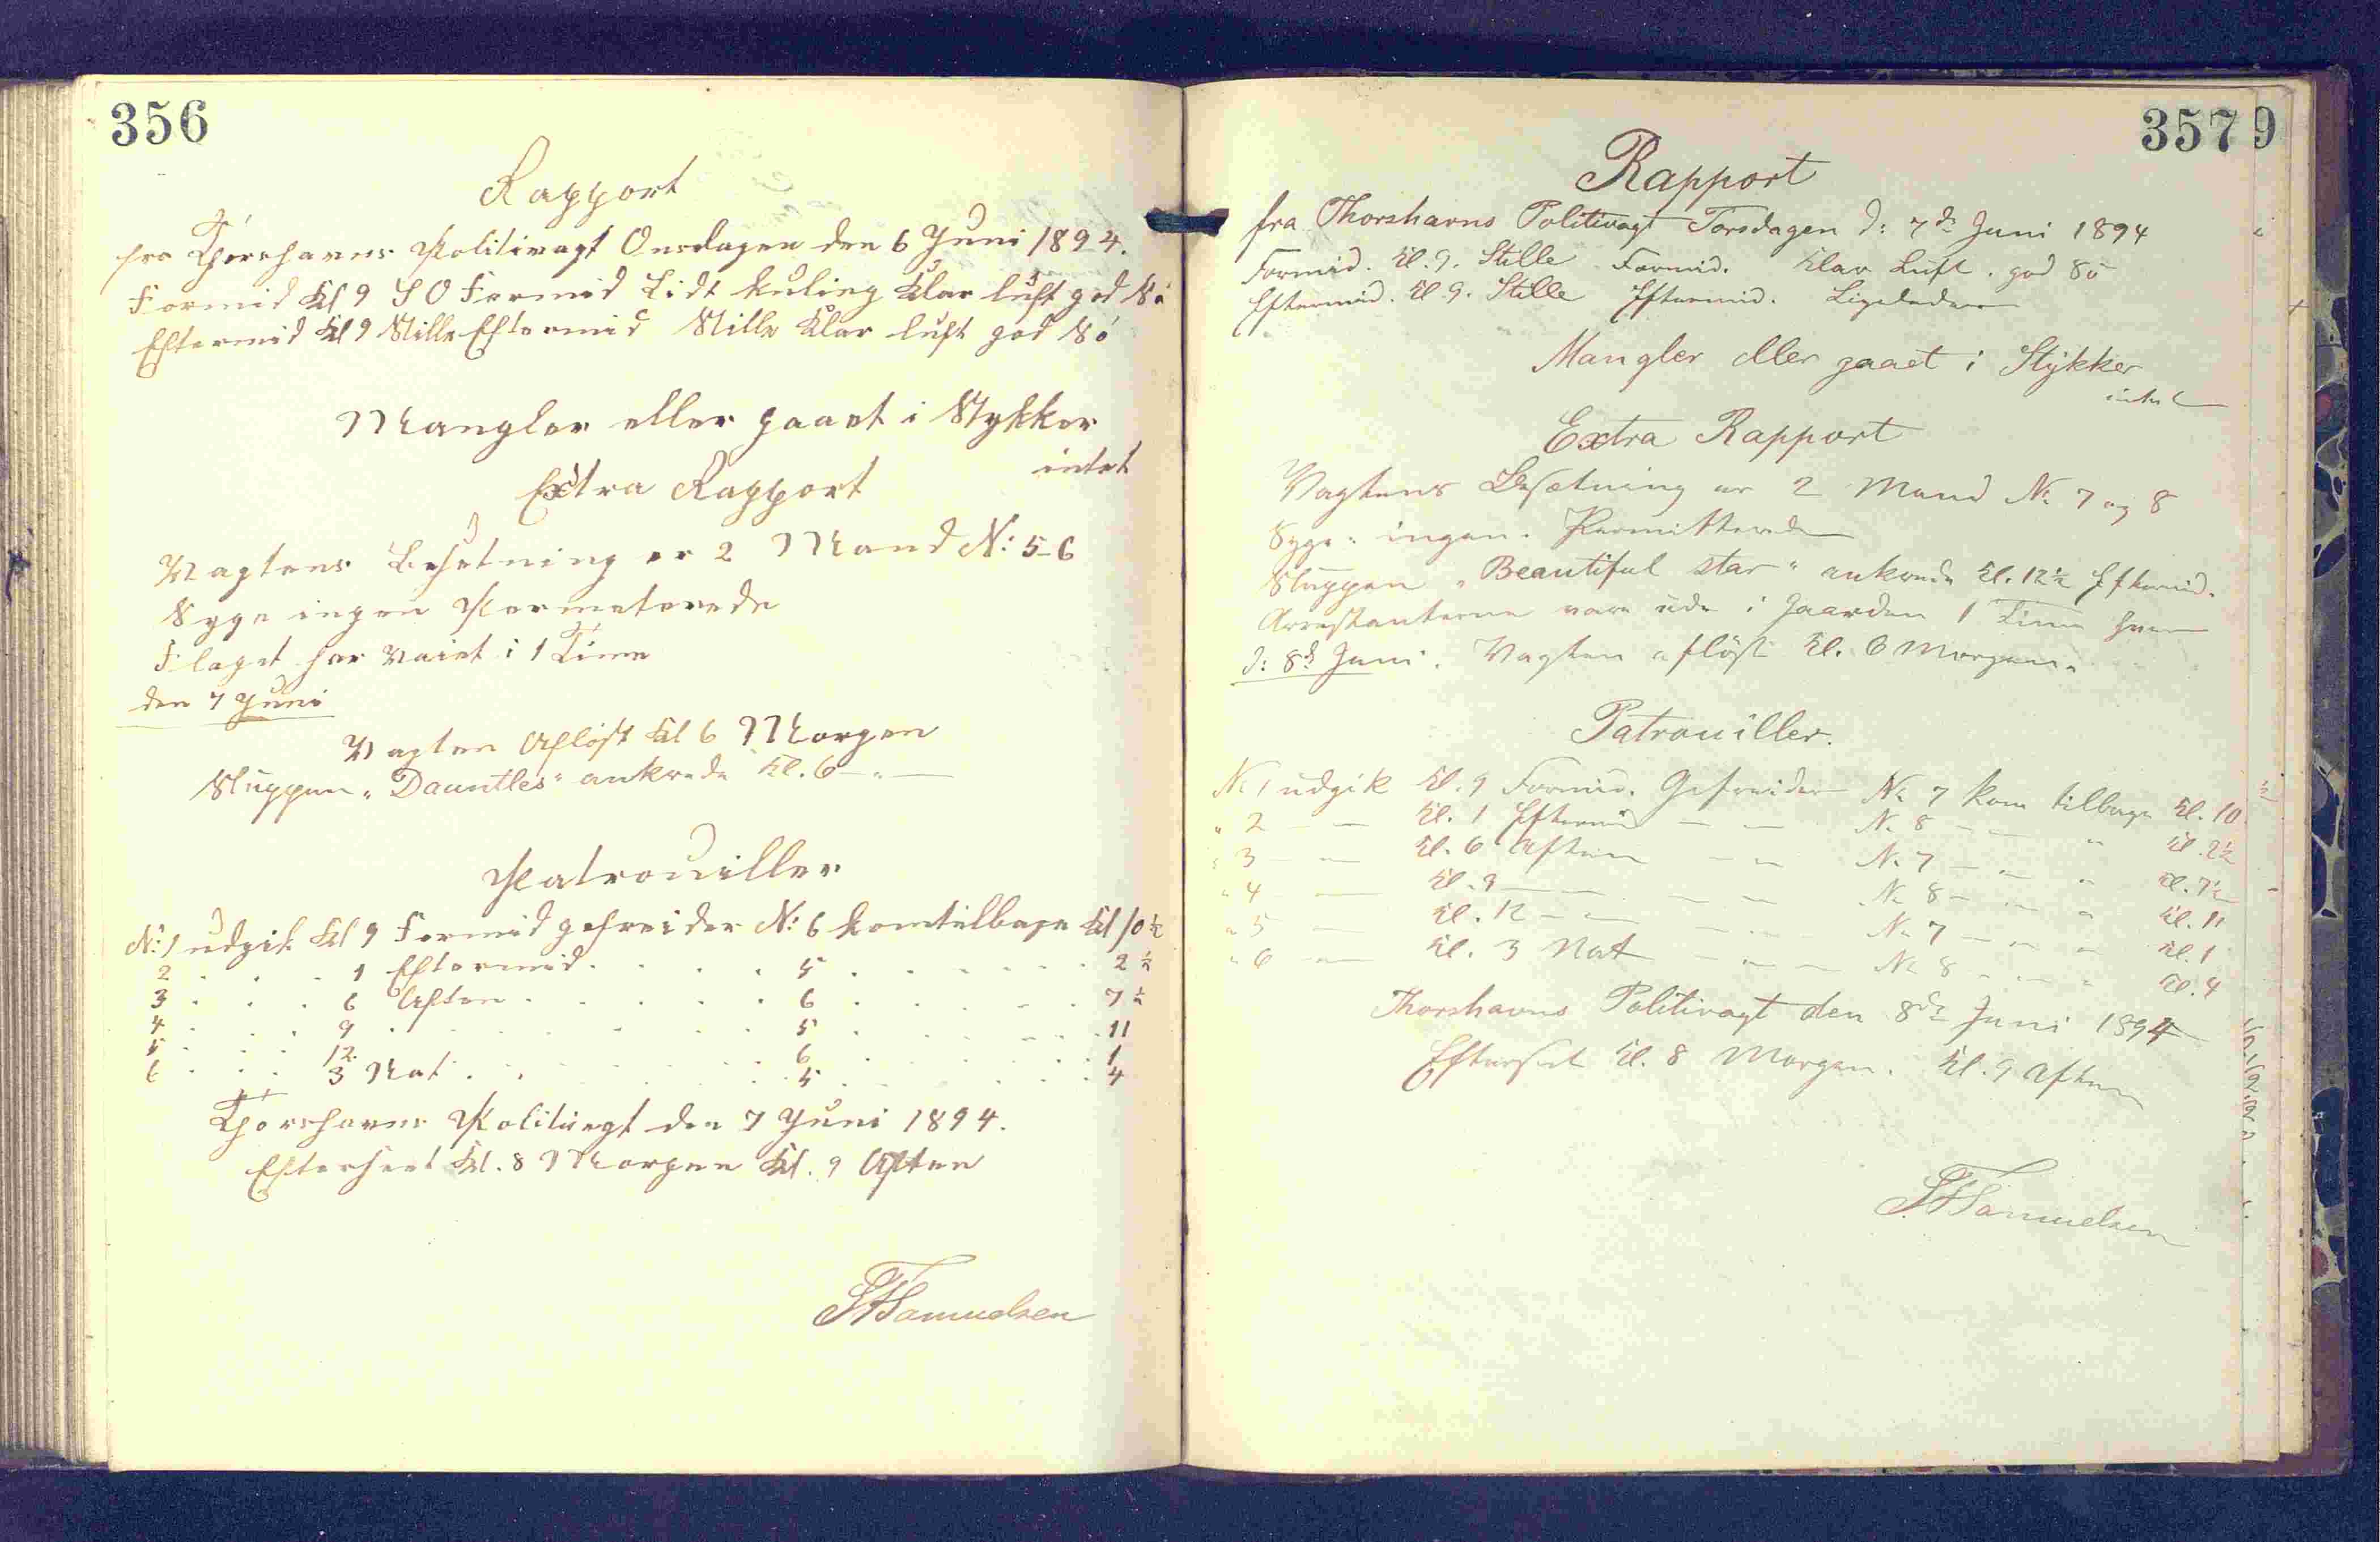 356
Rapport
fra Thorshavns Politivagt Onsdagen den 6 Juni 1894.
Formid Kl 9 S O Formid Lidt kuling Klar luft god Sö
Eftermid Kl 9 Stille Eftermid Stille Klar luft god Sö
Mangler eller gaaet i Stykker
intet
Extra Rapport
Vagtens Besetning er 2 Mand N: 5-6
Syge ingen Permeterede
Flaget har Vaiet i 1 Time
den 7 Juni
Vagten Aflöst Kl 6 Morgen
Sluppen „Dauntles“ ankrede Kl. 6 — „ —
Patrouiller
N: 1 udgik Kl 9 Formid gefreider N: 6 kom tilbage Kl 10 ½
2 . . . 1 Eftermid . . . . 5 . . . . . . 2 ½
3 . . . 6 Aften . . . . . 6 . . . . . 7 ½
4 . . . 9 . . . . . . 5 . . . . . 11
5 . . . 12 . . . . . . 6 . . . . . 1
6 . . . 3 Nat . . . . . 5 . . . . . 4
Thorshavns Politivagt den 7 Juni 1894.
Efterseet Kl. 8 Morgen Kl. 9 Aften
Samuelsen
357 9
Rapport
fra Thorshavns Politivagt Torsdagen d: 7de Juni 1894
Formid. Kl. 9. Stille Formid. Klar Luft. god Sö
Eftermid. Kl. 9. Stille Eftermid. Ligeledes
Mangler eller gaaet i Stykker
intet
Extra Rapport
Vagtens Besætning er 2 Mand No 7 og 8
Syge: ingen. Permitterede
Sluppen „Beautiful star“ ankrede Kl. 12½ Eftermid.
Arrestanterne vare ude i Gaarden 1 Time hver
d: 8de Juni. Vagten aflöst Kl. 6 Morgen.
Patrouiller.
No 1 udgik Kl. 9 Formid. Gefreider No 7 kom tilbage Kl. 10 ½
„ 2 — — Kl. 1 Eftermid — — No 8 — — „ Kl. 2½
„ 3 — — Kl. 6 Aften — — No 7 — — „ Kl. 7½
„ 4 — — Kl. 9 — — — — No 8 — — „ Kl. 11
„ 5 — — Kl. 12 — — — — No 7 — — „ Kl. 1
„ 6 — — Kl. 3 Nat — — — No 8 — — „ Kl. 4
Thorshavns Politivagt den 8de Juni 1894
Efterseet Kl. 8 Morgen. Kl. 9 Aften
Samuelsen